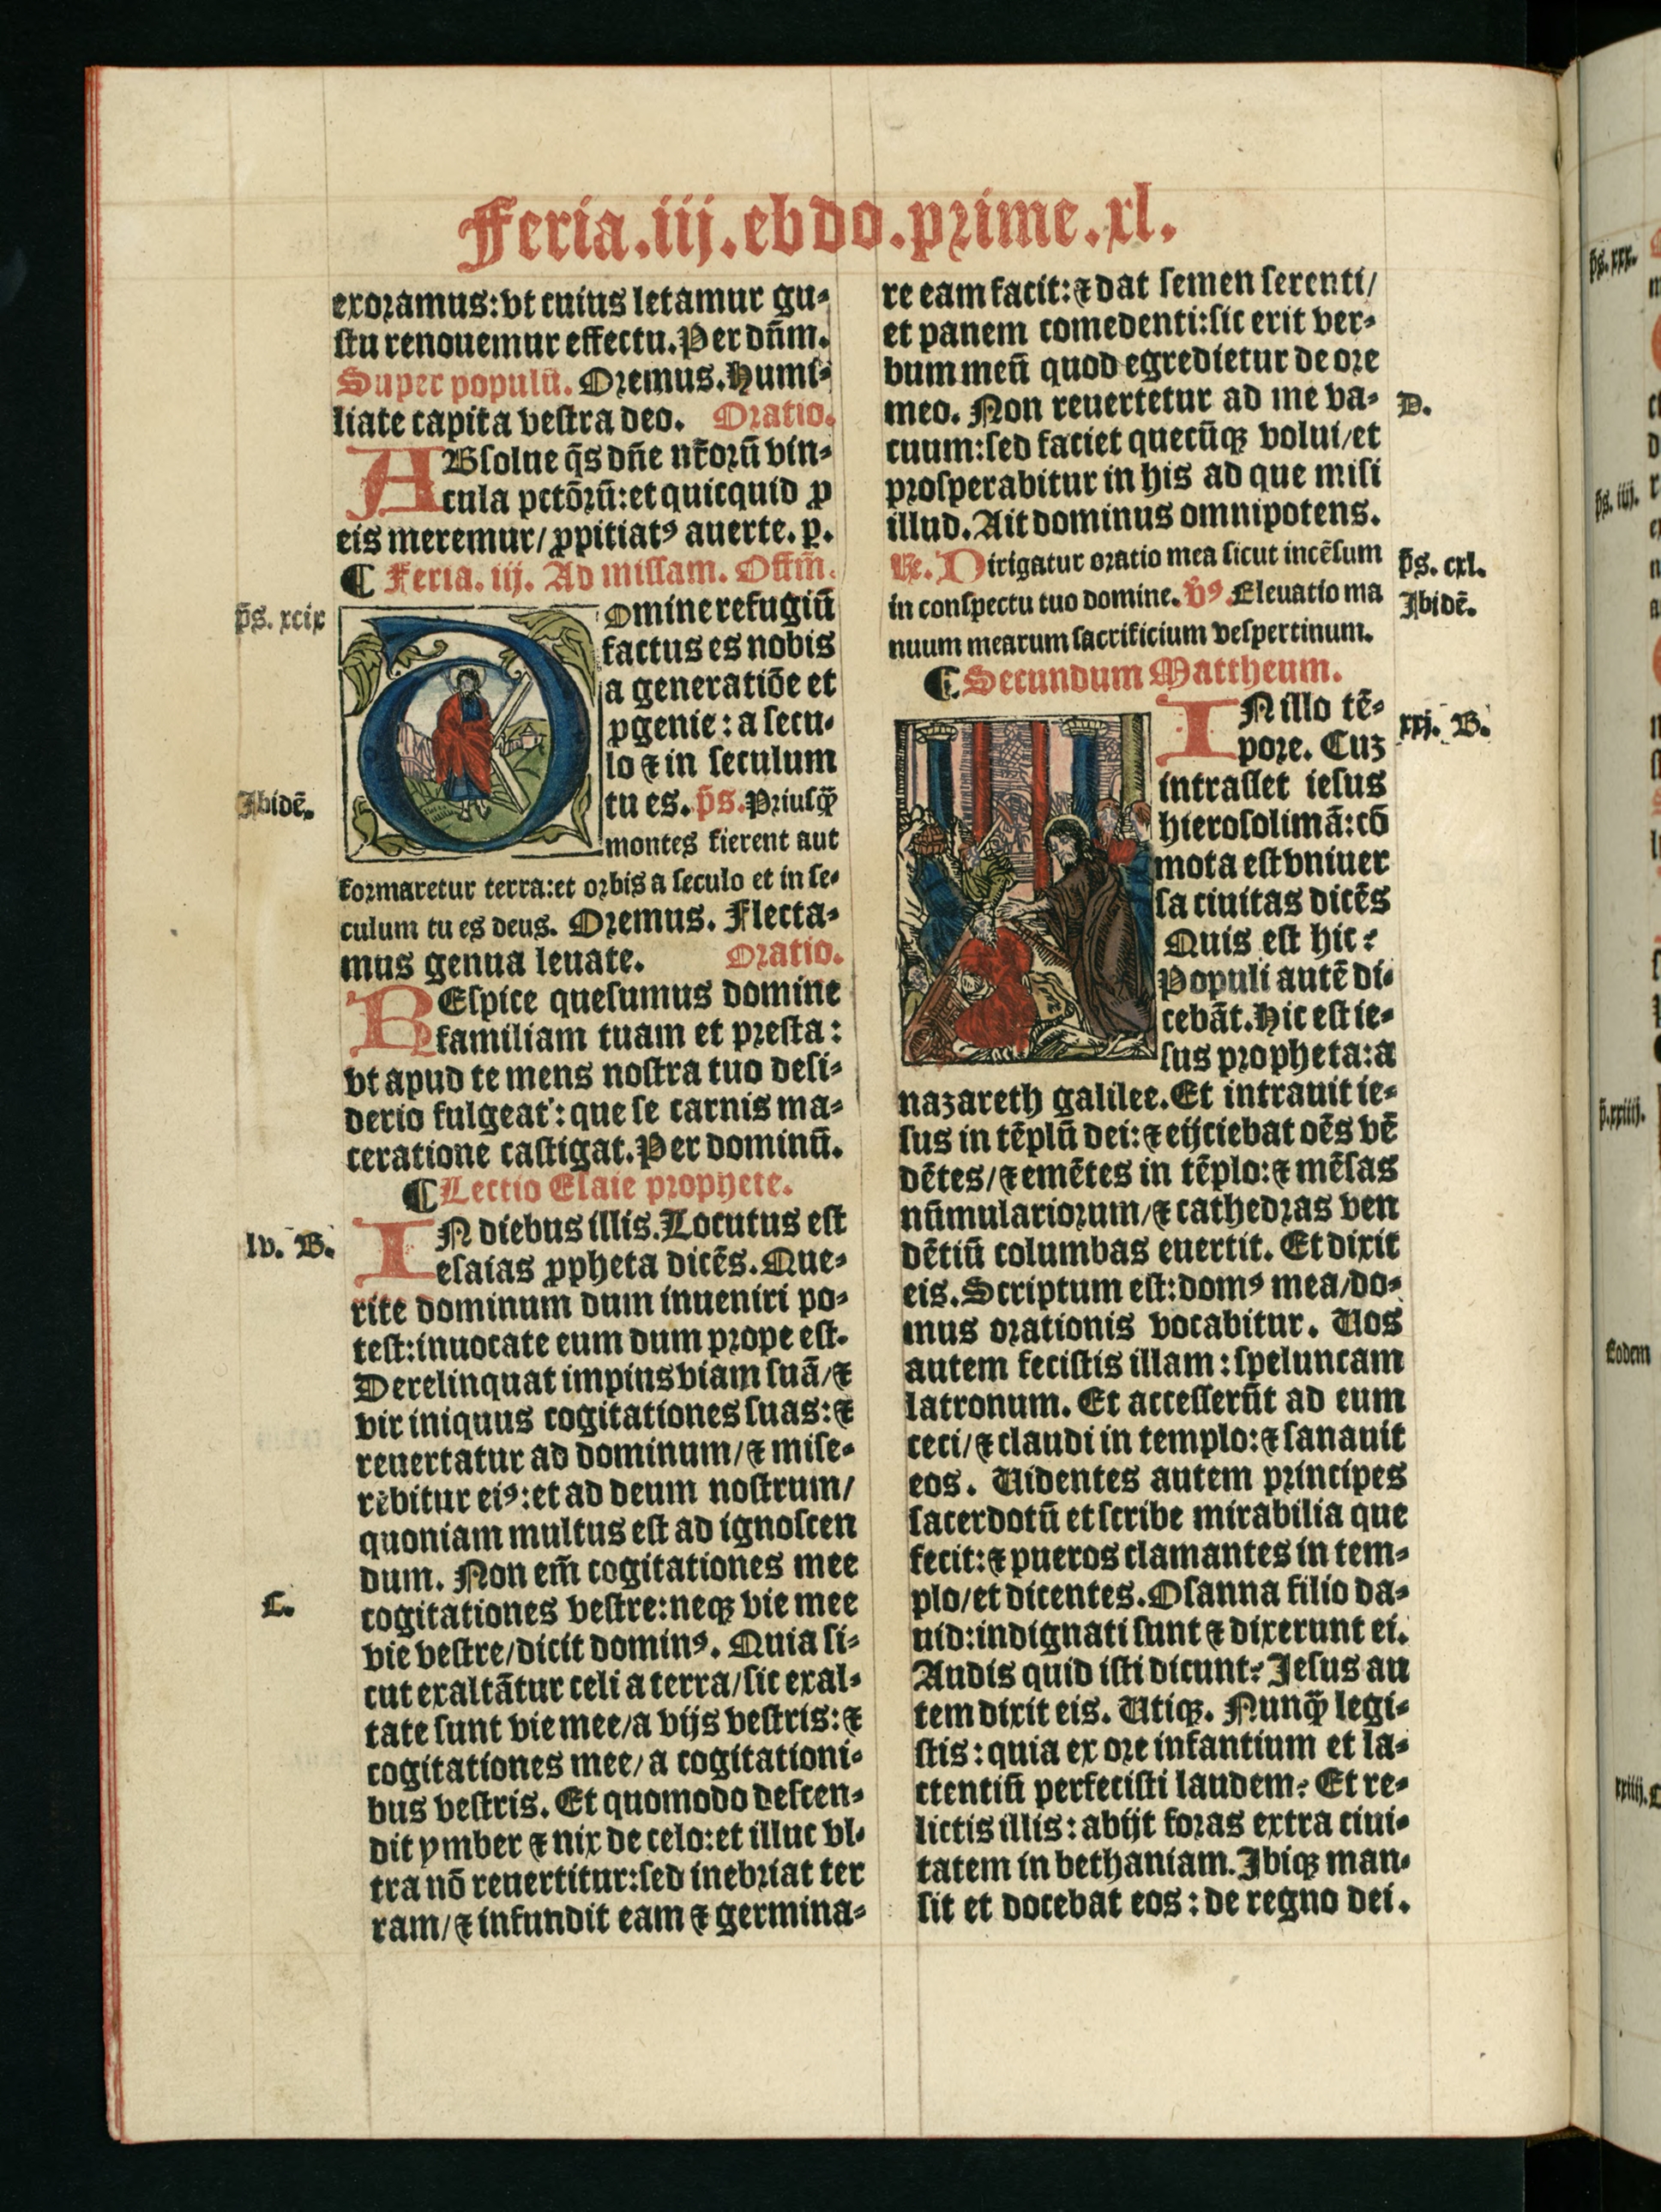 Feria.iij.ebdo.prime.xl.
exoramus:vt cuius letamur gu⸗
stu renouemur effectu.Per dn̄m.
Super populū. Oremus.Humi⸗
liate capita vestra deo. Oratio.
ABsolue q̄s dn̄e nr̄orū vin⸗
cula pctōrū:et quicquid ꝓ
eis meremur/ꝓpitiatꝰ auerte.p̲.
¶ Feria. iij. Ad missam. Offm̄.
p̄s. xcix
Domine refugiū
factus es nobis
a generatiōe et
ꝓgenie: a secu⸗
lo ⁊ in seculum
Ibidē.
tu es. p̄s. Priusq̄ꝫ
montes fierent aut
formaretur terra:et orbis a seculo et in se⸗
culum tu es deus. Oremus. Flecta⸗
mus genua leuate. Oratio.
REspice quesumus domine
familiam tuam et presta:
vt apud te mens nostra tuo desi⸗
derio fulgeat: que se carnis ma⸗
ceratione castigat.Per dominū.
¶ Lectio Esaie prophete.
lv. B.
IN diebus illis.Locutus est
esaias ꝓpheta dicēs. Que⸗
rite dominum dum inueniri po⸗
test:inuocate eum dum prope est.
Derelinquat impius viam suā/⁊
vir iniquus cogitationes suas:⁊
reuertatur ad dominum/⁊ mise⸗
rebitur eiꝰ:et ad deum nostrum/
quoniam multus est ad ignoscen
dum. Non em̄ cogitationes mee
C.
cogitationes vestre:neqꝫ vie mee
vie vestre/dicit dominꝰ. Quia si⸗
cut exaltātur celi a terra/sic exal⸗
tate sunt vie mee/a vijs vestris:⁊
cogitationes mee/a cogitationi⸗
bus vestris. Et quomodo descen⸗
dit ymber ⁊ nix de celo:et illuc vl⸗
tra nō reuertitur:sed inebriat ter
ram/⁊ infundit eam ⁊ germina⸗
re eam facit:⁊ dat semen serenti/
et panem comedenti:sic erit ver⸗
bum meū quod egredietur de ore
meo. Non reuertetur ad me va⸗
D.
cuum:sed faciet quecūqꝫ volui/et
prosperabitur in his ad que misi
illud. Ait dominus omnipotens.
℞. Dirigatur oratio mea sicut incēsum
p̄s. cxl.
in conspectu tuo domine. v̄ꝰ. Eleuatio ma
Ibidē.
nuum mearum sacrificium vespertinum.
¶ Secundum Mattheum.
IN illo tē⸗
xxj. B.
pore. Cuꝫ
intrasset iesus
hierosolimā:cō
mota est vniuer
sa ciuitas dicēs
Quis est hic?
Populi autē di⸗
cebāt.Hic est ie⸗
sus propheta:a
nazareth galilee.Et intrauit ie⸗
sus in tēplū dei:⁊ eijciebat oēs vē
dētes/⁊ emētes in tēplo:⁊ mēsas
nūmulariorum/⁊ cathedras ven
dētiū columbas euertit. Et dixit
eis.Scriptum est:domꝰ mea/do⸗
mus orationis vocabitur. Uos
autem fecistis illam: speluncam
latronum. Et accesserūt ad eum
ceci/⁊ claudi in templo:⁊ sanauit
eos. Uidentes autem principes
sacerdotū et scribe mirabilia que
fecit:⁊ pueros clamantes in tem⸗
plo/et dicentes.Osanna filio da⸗
uid:indignati sunt ⁊ dixerunt ei.
Audis quid isti dicunt? Jesus au
tem dixit eis. Utiqꝫ. Nunq̄ꝫ legi⸗
stis: quia ex ore infantium et la⸗
ctentiū perfecisti laudem? Et re⸗
lictis illis: abijt foras extra ciui⸗
tatem in bethaniam. Ibiqꝫ man⸗
sit et docebat eos: de regno dei.
p̄s. xxx.
p̄s. iiij.
p̄.xxiiij.
Eodem